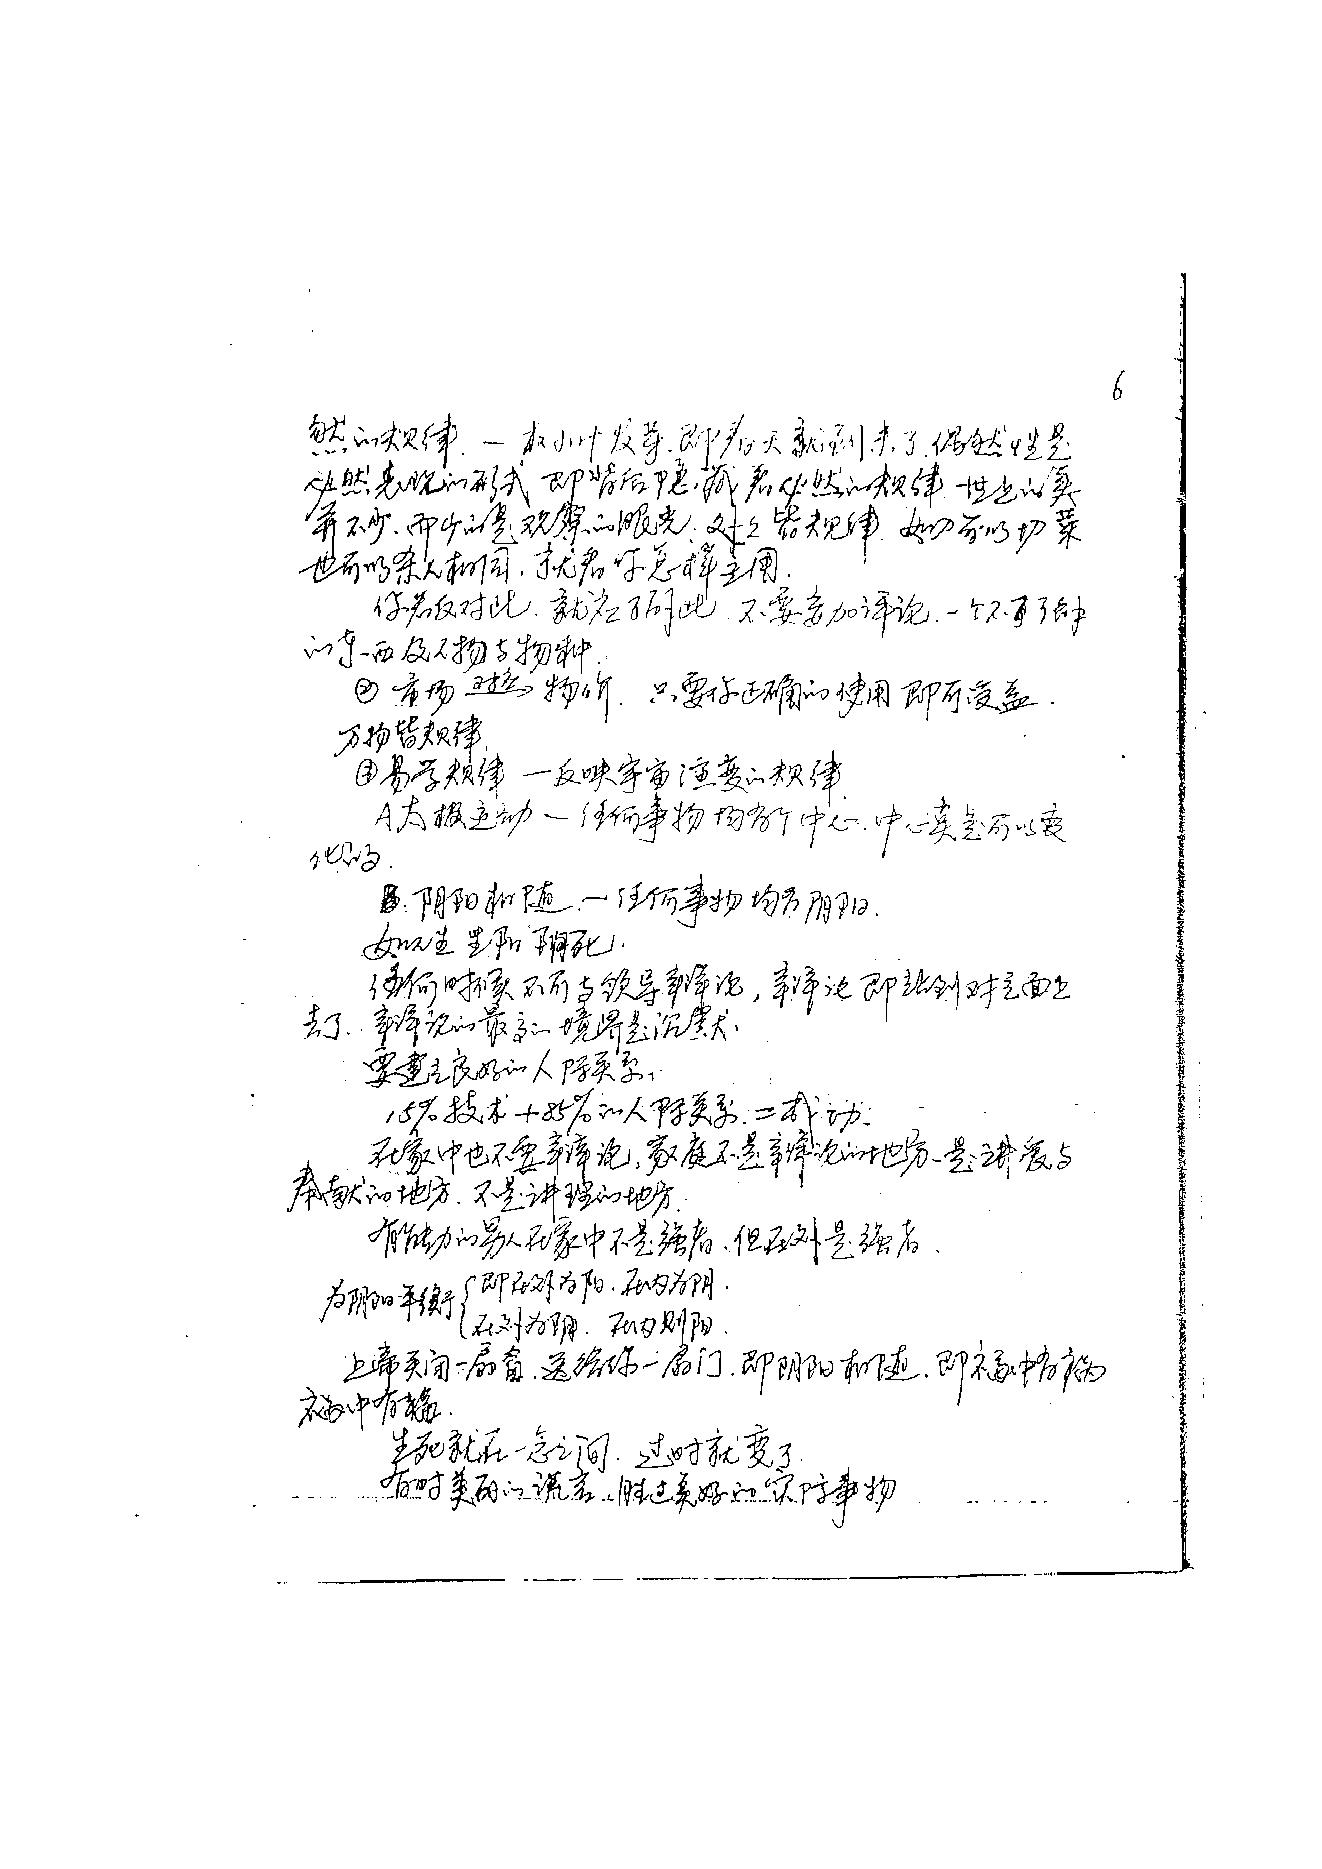 6
然的规律.一权小叶发芽.即春天就到来了.偶然性是
必然表现的形式 即背后隐藏着必然的规律 世上的美
并不少.而少的是观察的眼光. 皆规律. 如刀可以切菜
也可以杀人相同.就看你怎样运用.
你若反对此.就应了解此 不要妄加评论.一个不了解
的东西及人物与物种.
② 市场 物价. 只要你正确的使用 即可受益.
万物皆规律.
③易学规律 一反映宇宙演变的规律
A太极运动一任何事物均有个中心.中心莫忘可以变
化的.
B.阴阳相随.一任何事物均有阴阳.
如人生 生阳 阴死.
任何时候不可与领导辩论,辩论即站到对立面上
去了. 辩论的最高的境界是沉默.
要建立良好的人际关系.
15%技术+85%的人际关系.=成功.
在家中也不要辩论,家庭不是辩论的地方-是讲爱与
奉献的地方.不是讲理的地方.
有能力的男人在家中不是强者.但在外是强者.
为阴阳平衡 即在外为阳.在内为阴.
在外为阴. 在内则阳.
上帝关闭一扇窗.送给你一扇门.即阴阳相随.即福中有祸
祸中有福.
生死就在一念之间. 过时就变了.
有时美丽的谎言.胜过美好的实际事物